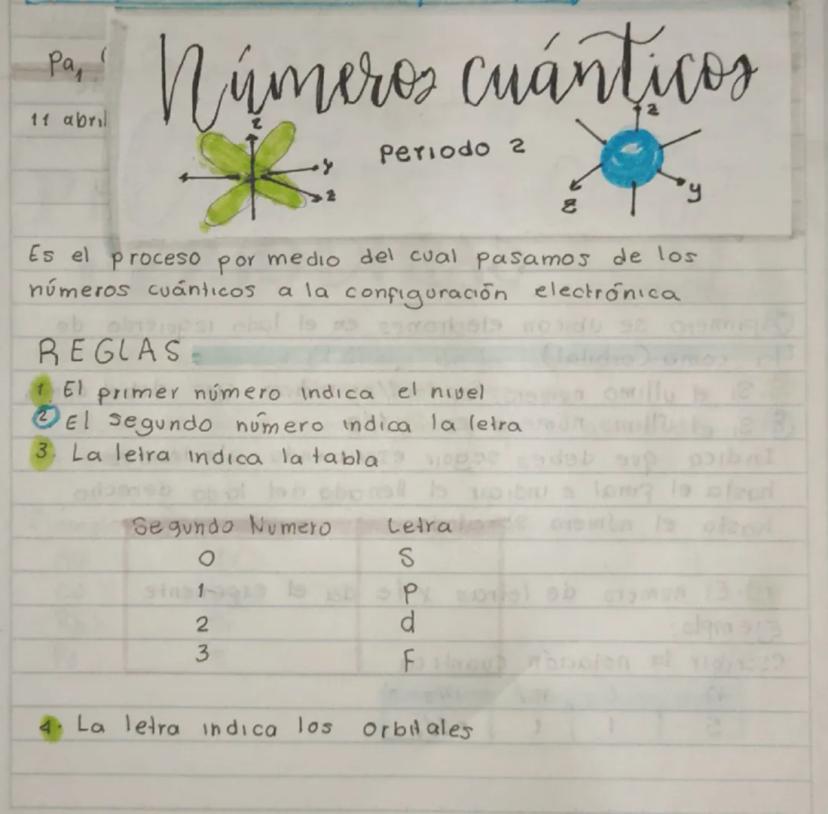 Números cuánticos
Pa,
11 abril
z
y
z
Periodo 2
z
y
z
Es el proceso por medio del cual pasamos de los
números cuánticos a la configuración electrónica
REGLAS
1. El primer número indica el nivel
2 El segundo número indica la letra
3. La letra indica la tabla
Segundo Numero Letra
0 S
1 P
2 d
3 F
4. La letra indica los orbitales